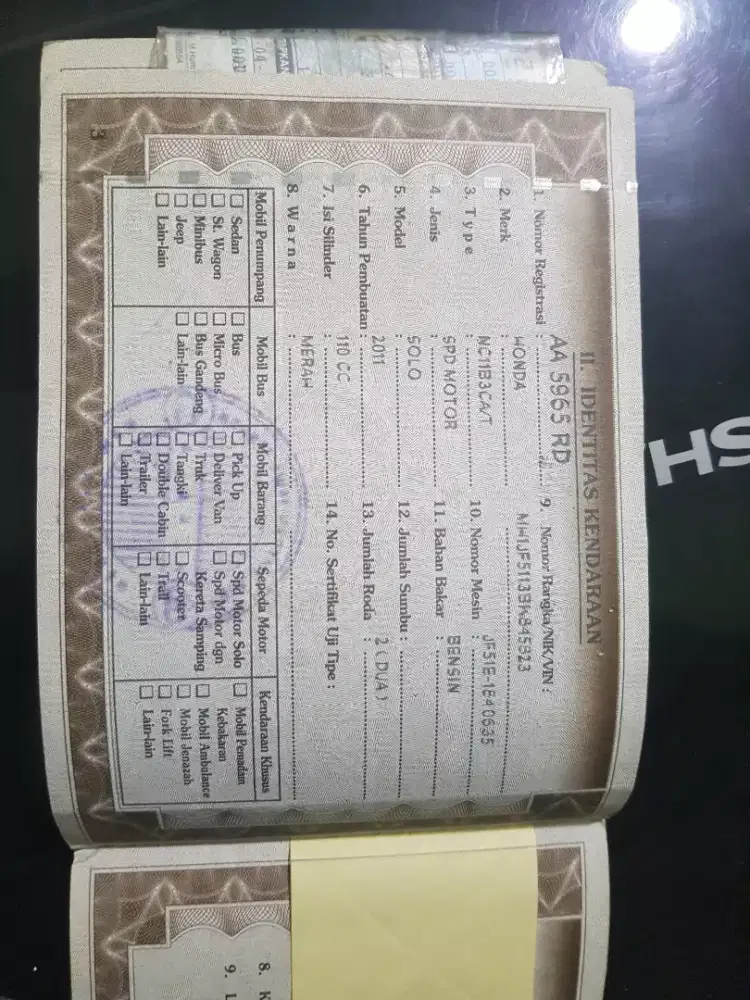 II. IDENTITAS KENDARAAN
1. Nomor Registrasi : AA 5965 RD
2. Merk : HONDA
3. Type : NC11B3CA/T
4. Jenis : SPD MOTOR
5. Model : SOLO
6. Tahun Pembuatan : 2011
7. Isi Silinder : 110 CC
8. Warna : MERAH
9. Nomor Rangka/NIK/VIN :
MH1JF5113BK845823
10. Nomor Mesin : JF51E-1840635
11. Bahan Bakar : BENSIN
12. Jumlah Sumbu :
13. Jumlah Roda : 2 (DUA)
14. No. Sertifikat Uji Tipe :
Mobil Penumpang
Sedan
St. Wagon
Minibus
Jeep
Lain-lain
Mobil Bus
Bus
Micro Bus
Bus Gandeng
Lain-lain
Mobil Barang
Pick Up
Deliver Van
Truk
Tangki
Double Cabin
Trailer
Lain-lain
Sepeda Motor
Spd Motor Solo
Spd Motor dgn
Kereta Samping
Scooter
Trail
Lain-lain
Kendaraan Khusus
Mobil Pemadam
Kebakaran
Mobil Ambulance
Mobil Jenazah
Fork Lift
Lain-lain
3
8. K
9.
SH